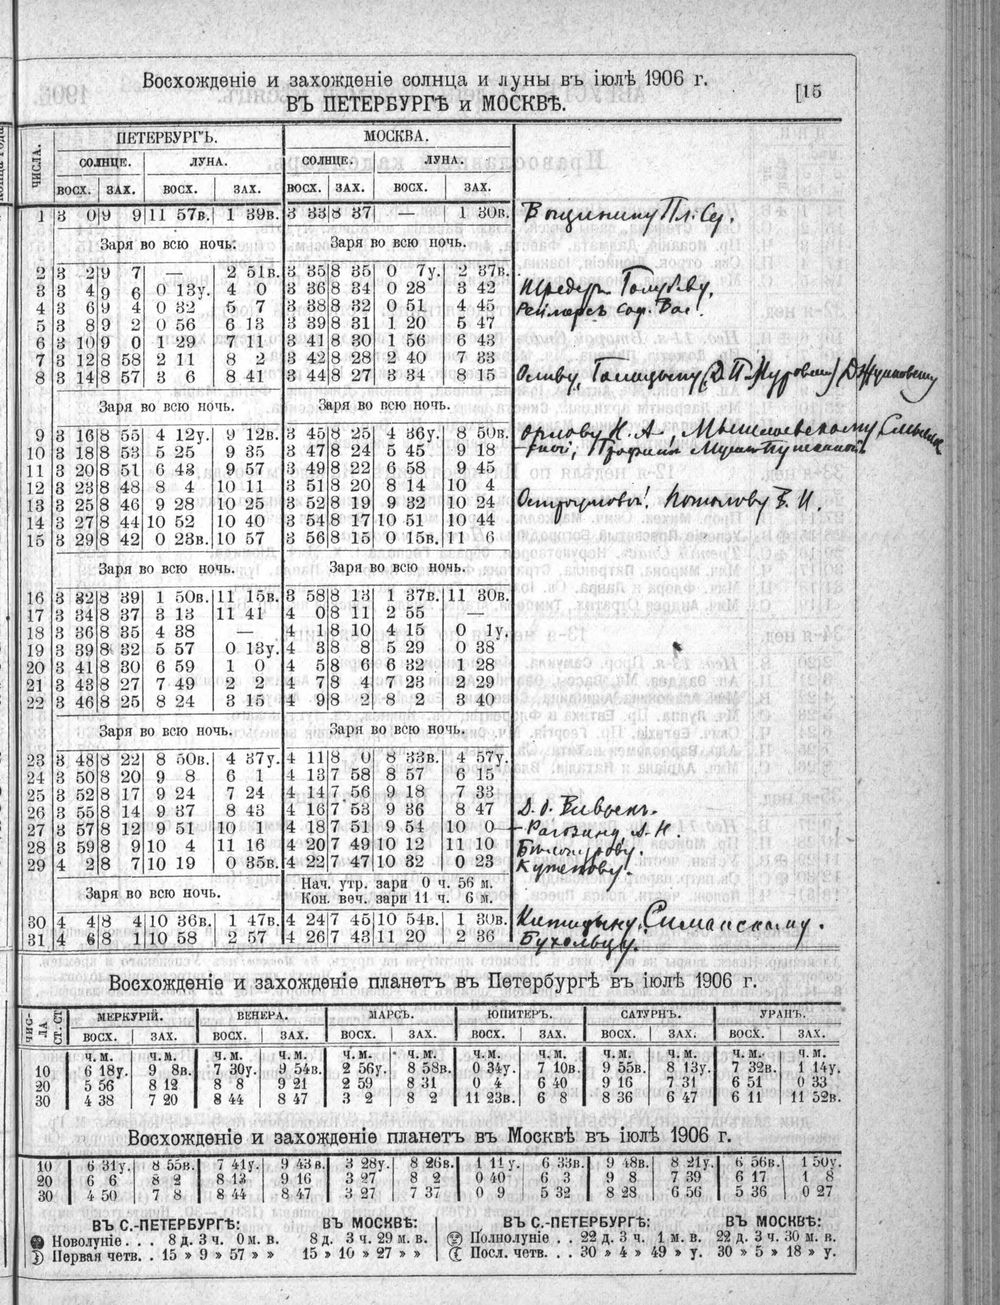 Восхожденіе и захожденіе солнца и луны въ іюлѣ 1906 г.
ВЪ ПЕТЕРБУРГѢ и МОСКВѢ.
[15
ЧИСЛА. ПЕТЕРБУРГЪ. МОСКВА.
СОЛНЦЕ. ЛУНА. СОЛНЦЕ. ЛУНА.
ВОСХ. ЗАХ. ВОСХ. ЗАХ. ВОСХ. ЗАХ. ВОСХ. ЗАХ.
1 3 0 9 9 11 57в. 1 39в. 3 33 8 37 — 1 30в.
Заря во всю ночь. Заря во всю ночь.
2 3 2 9 7 — 2 51в. 3 35 8 35 0 7у. 2 37в.
3 3 4 9 6 0 13у. 4 0 3 36 8 34 0 28 3 42
4 3 6 9 4 0 32 5 7 3 38 8 32 0 51 4 45
5 3 8 9 2 0 56 6 13 3 39 8 31 1 20 5 47
6 3 10 9 0 1 29 7 11 3 41 8 30 1 56 6 43
7 3 12 8 58 2 11 8 2 3 42 8 28 2 40 7 33
8 3 14 8 57 3 6 8 41 3 44 8 27 3 34 8 15
Заря во всю ночь. Заря во всю ночь.
9 3 16 8 55 4 12у. 9 12в. 3 45 8 25 4 36у. 8 50в. Орлову Н. А.
10 3 18 8 53 5 25 9 35 3 47 8 24 5 45 9 18
11 3 20 8 51 6 43 9 57 3 49 8 22 6 58 9 45
12 3 23 8 48 8 4 10 11 3 51 8 20 8 14 10 4
13 3 25 8 46 9 28 10 25 3 52 8 19 9 32 10 24
14 3 27 8 44 10 52 10 40 3 54 8 17 10 51 10 44
15 3 29 8 42 0 23в. 10 57 3 56 8 15 0 15в. 11 6
Заря во всю ночь. Заря во всю ночь.
16 3 32 8 39 1 50в. 11 15в. 3 58 8 13 1 37в. 11 30в.
17 3 34 8 37 3 13 11 41 4 0 8 11 2 55 —
18 3 36 8 35 4 38 — 4 1 8 10 4 15 0 1у.
19 3 39 8 32 5 57 0 13у. 4 3 8 8 5 29 0 38
20 3 41 8 30 6 59 1 0 4 5 8 6 6 32 1 28
21 3 43 8 27 7 49 2 2 4 7 8 4 7 23 2 29
22 3 46 8 25 8 24 3 15 4 9 8 2 8 2 3 40
Заря во всю ночь. Заря во всю ночь.
23 3 48 8 22 8 50в. 4 37у. 4 11 8 0 8 33в. 4 57у.
24 3 50 8 20 9 8 6 1 4 13 7 58 8 57 6 15
25 3 52 8 17 9 24 7 24 4 14 7 56 9 18 7 33
26 3 55 8 14 9 37 8 43 4 16 7 53 9 36 8 47
27 3 57 8 12 9 51 10 1 4 18 7 51 9 54 10 0
28 3 59 8 9 10 4 11 16 4 20 7 49 10 12 11 10
29 4 2 8 7 10 19 0 35в. 4 22 7 47 10 32 0 23
Заря во всю ночь. Нач. утр. зари 0 ч. 56 м.
Кон. веч. зари 11 ч. 6 м.
30 4 4 8 4 10 36в. 1 47в. 4 24 7 45 10 54в. 1 30в.
31 4 6 8 1 10 58 2 57 4 26 7 43 11 20 2 36 Бухольцу.
Восхожденіе и захожденіе планетъ въ Петербургѣ въ іюлѣ 1906 г.
ЧИСЛА СТ. СТ. МЕРКУРІЙ. ВЕНЕРА. МАРСЪ. ЮПИТЕРЪ. САТУРНЪ. УРАНЪ.
ВОСХ. ЗАХ. ВОСХ. ЗАХ. ВОСХ. ЗАХ. ВОСХ. ЗАХ. ВОСХ. ЗАХ. ВОСХ. ЗАХ.
ч. м. ч. м. ч. м. ч. м. ч. м. ч. м. ч. м. ч. м. ч. м. ч. м. ч. м. ч. м.
10 6 18у. 9 8в. 7 30у. 9 54в. 2 56у. 8 58в. 0 34у. 7 10в. 9 55в. 8 13у. 7 32в. 1 14у.
20 5 56 8 12 8 8 9 21 2 59 8 31 0 4 6 40 9 16 7 31 6 51 0 33
30 4 38 7 20 8 44 8 47 3 2 8 2 11 23в. 6 8 8 36 6 47 6 11 11 52в.
Восхожденіе и захожденіе планетъ въ Москвѣ въ іюлѣ 1906 г.
10 6 31у. 8 55в. 7 41у. 9 43в. 3 28у. 8 26в. 1 11у. 6 33в. 9 48в. 8 21у. 6 56в. 1 50у.
20 6 6 8 2 8 13 9 16 3 27 8 2 0 40 6 3 9 8 7 39 6 17 1 8
30 4 50 7 8 8 44 8 47 3 27 7 37 0 9 5 32 8 28 6 56 5 36 0 27
ВЪ С.-ПЕТЕРБУРГѢ: ВЪ МОСКВѢ: ВЪ С.-ПЕТЕРБУРГѢ: ВЪ МОСКВѢ:
Новолуніе . . . 8 д. 3 ч. 0 м. в. 8 д. 3 ч. 29 м. в. Полнолуніе . . 22 д. 3 ч. 1 м. в. 22 д. 3 ч. 30 м. в.
Первая четв. . 15 » 9 » 57 » » 15 » 10 » 27 » » Посл. четв. . . 30 » 4 » 49 » у. 30 » 5 » 18 » у.